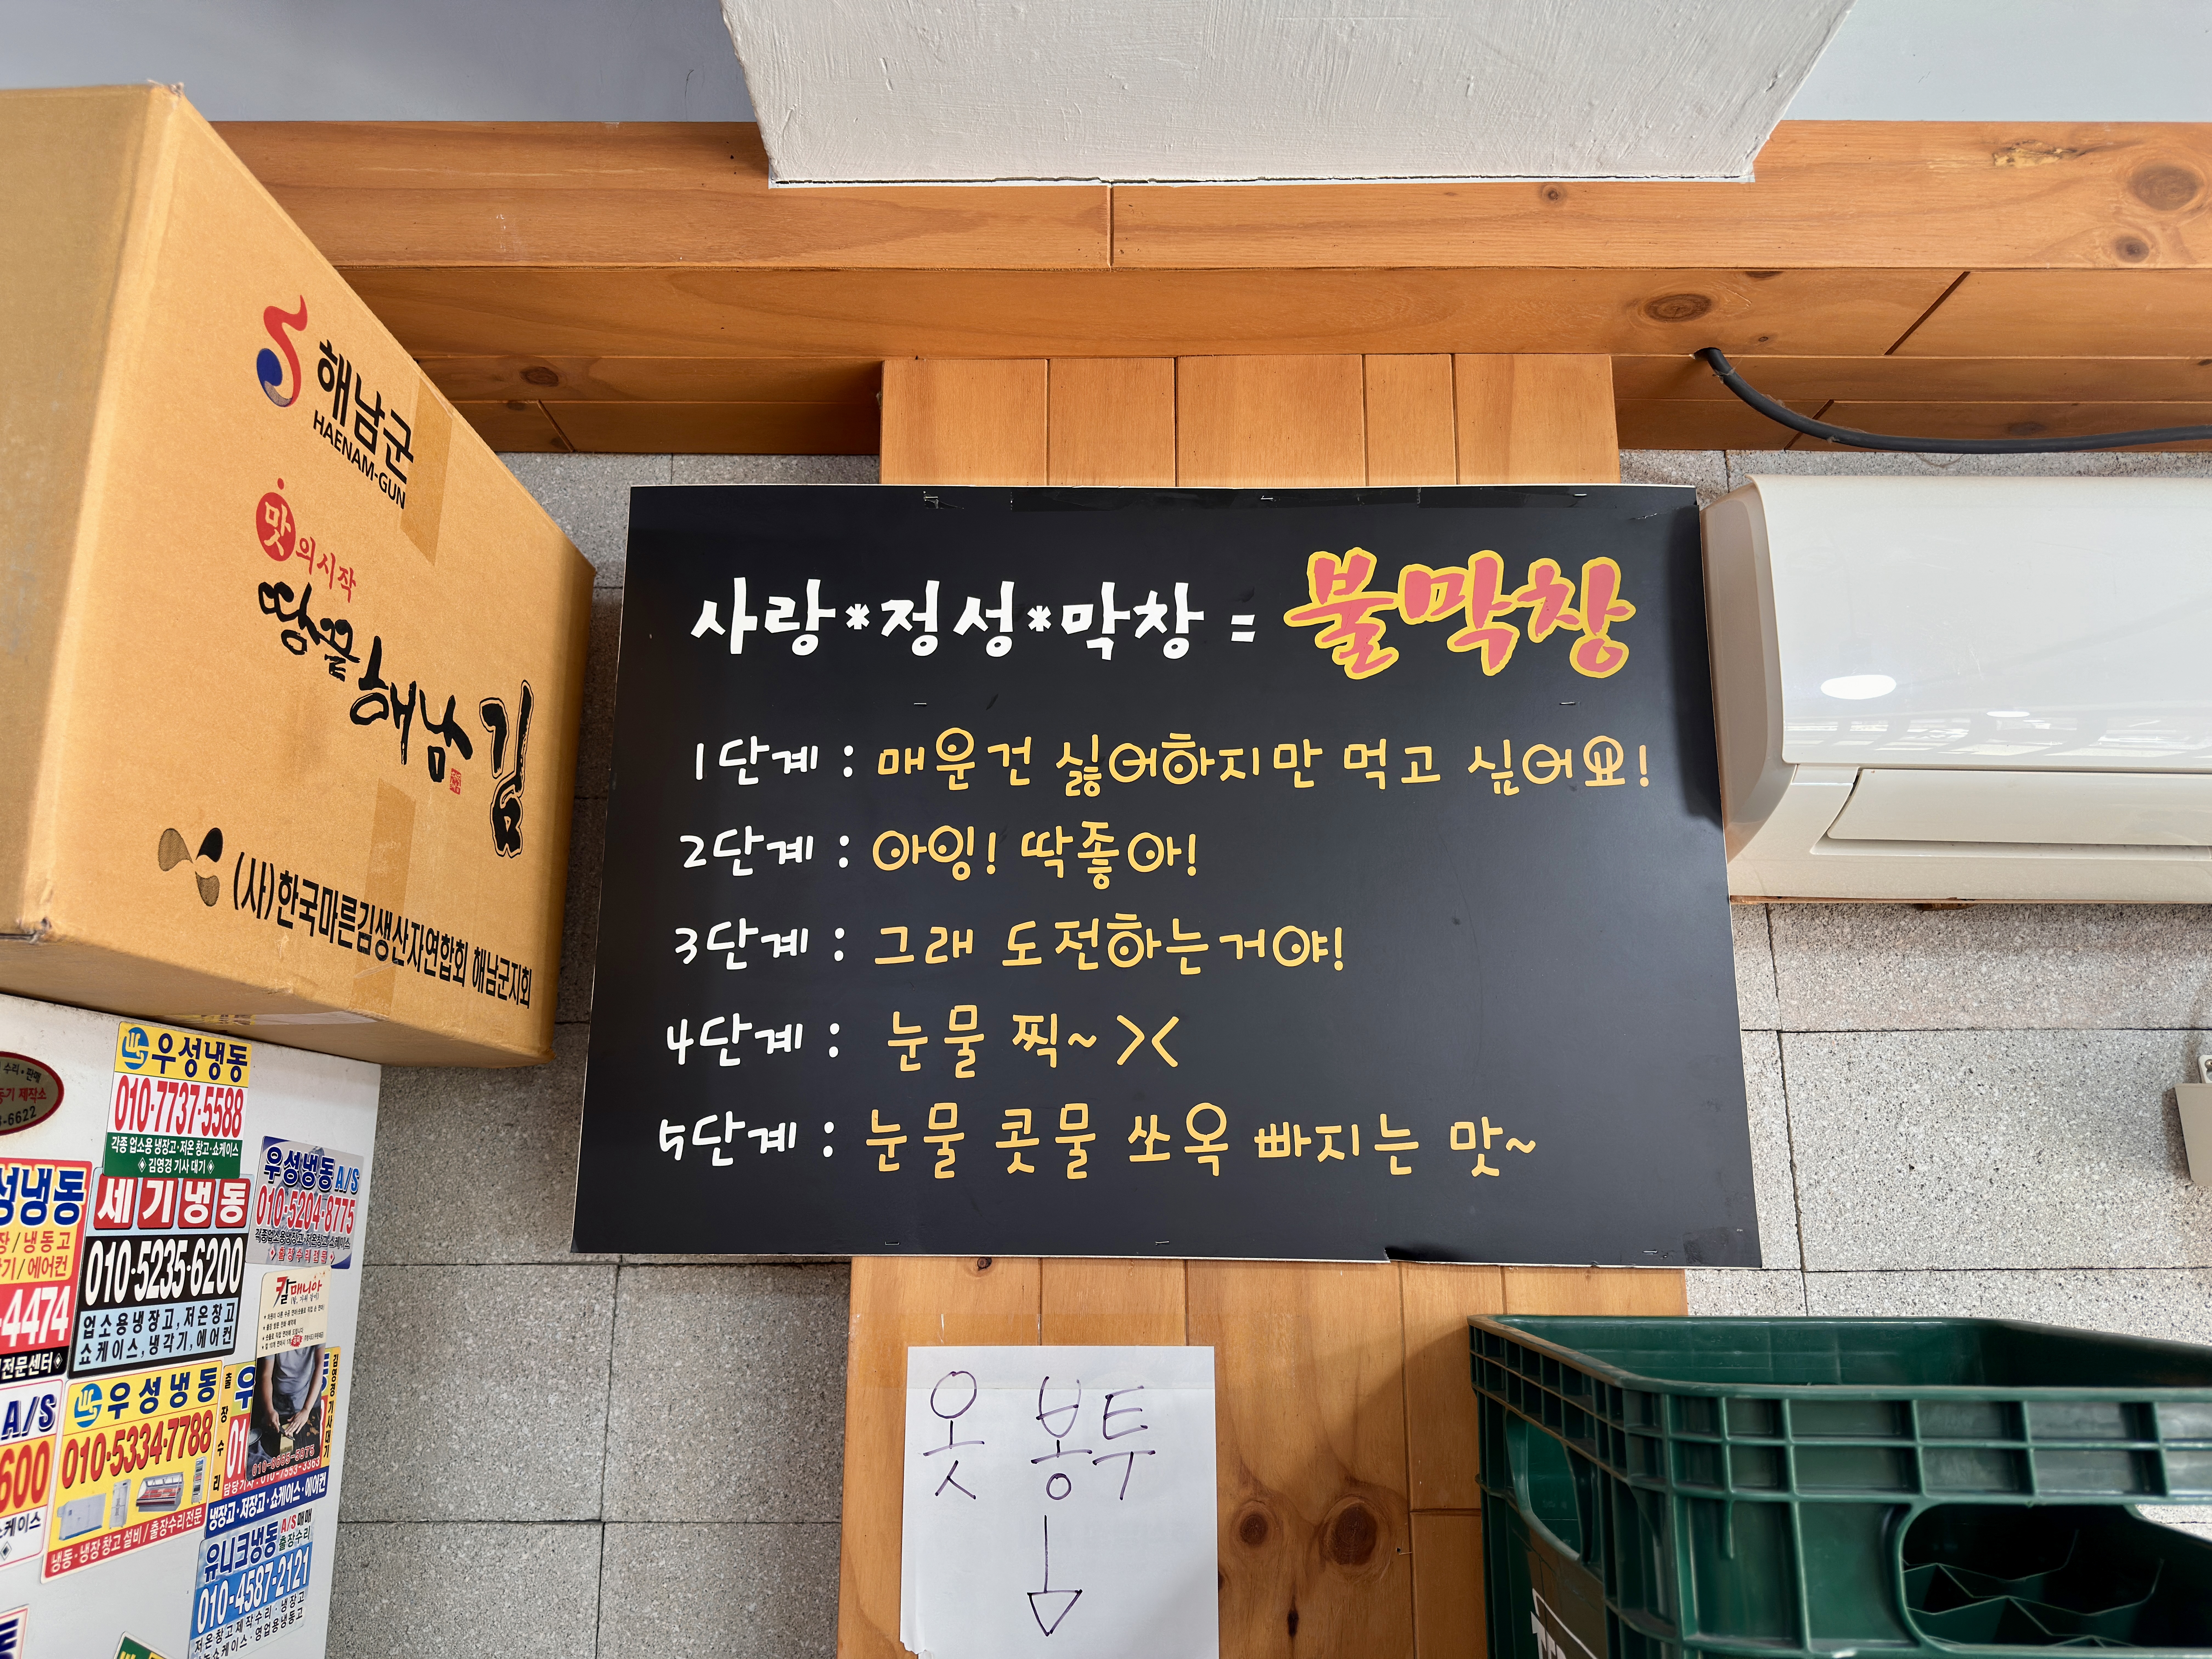 해남군
HAENAM-GUN
맛의시작
땅끝해남 김
(사)한국마른김생산자연합회 해남군지회
사랑*정성*막창 = 불막창
1단계 : 매운건 싫어하지만 먹고 싶어요!
2단계 : 아잉! 딱좋아!
3단계 : 그래 도전하는거야!
4단계 : 눈물 찍~ ><
5단계 : 눈물 콧물 쏘옥 빠지는 맛~
옷 봉투
수리·판매
제작소
-6622
우성냉동
010-7737-5588
각종 업소용 냉장고·저온 창고·쇼케이스
김영경 기사 대기
성냉동
장/냉동고
기/에어컨
-4474
전문센터
세기냉동
010-5235-6200
업소용냉장고, 저온창고
쇼케이스, 냉각기, 에어컨
우성냉동 A/S
010-5204-8775
칼매니아
A/S
600
쇼케이스
우성냉동
010-5334-7788
냉동·냉장 창고 설비/출장수리전문
출장수리
냉장고·저장고·쇼케이스·에어컨
유니크냉동 A/S매매
출장수리
010-4587-2121